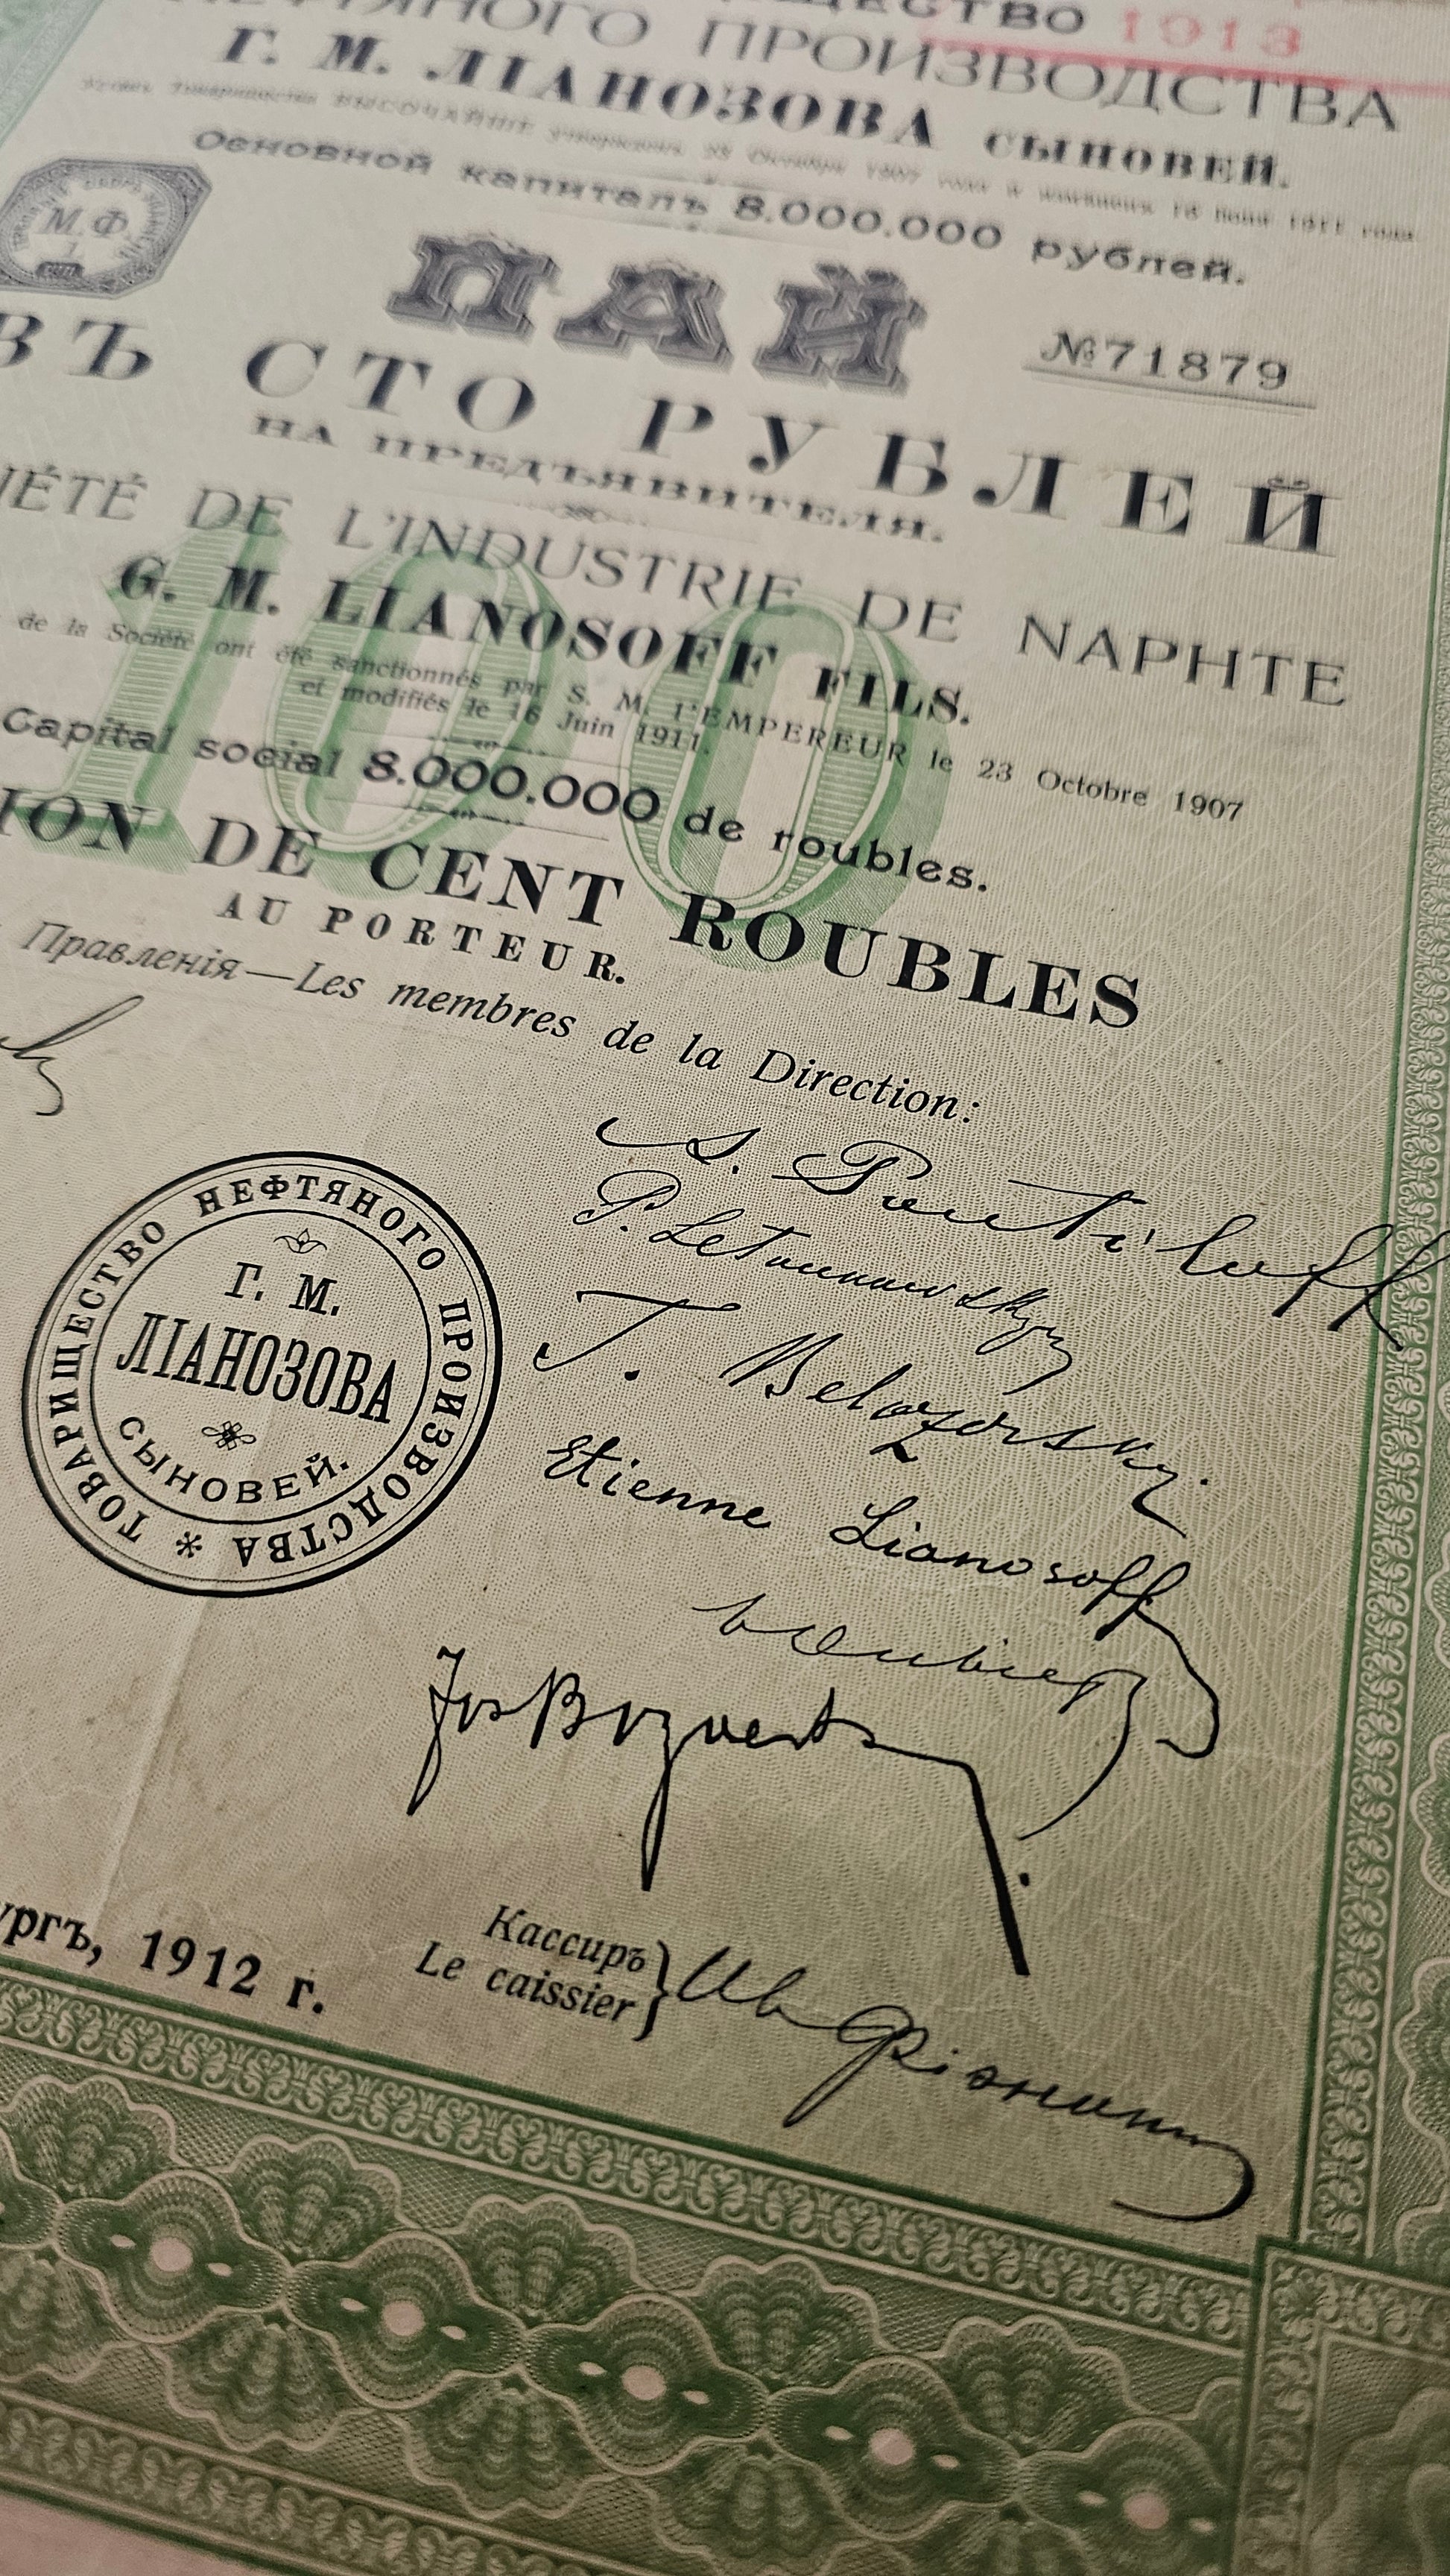 ЩЕСТВО 1913
ТЯНОГО ПРОИЗВОДСТВА
Г. М. ЛІАНОЗОВА СЫНОВЕЙ.
Уставъ Товарищества ВЫСОЧАЙШЕ утвержденъ 23 Октября 1907 года и измѣненъ 16 Іюня 1911 года.
Основной капиталъ 8.000.000 рублей.
М.Ф.
ПАЙ
№71879
ВЪ СТО РУБЛЕЙ
НА ПРЕДЪЯВИТЕЛЯ.
100
IÉTÉ DE L'INDUSTRIE DE NAPHTE
G. M. LIANOSOFF FILS.
de la Société ont été sanctionnés par S. M. l'EMPEREUR le 23 Octobre 1907
et modifiés le 16 Juin 1911.
Capital social 8.000.000 de roubles.
ION DE CENT ROUBLES
AU PORTEUR.
Правленія—Les membres de la Direction:
A. Poutiloff
T. Belozersky
Etienne Lianosoff
ТОВАРИЩЕСТВО НЕФТЯНОГО ПРОИЗВОДСТВА *
Г. М.
ЛІАНОЗОВА
СЫНОВЕЙ.
ургъ, 1912 г.
Кассиръ
Le caissier